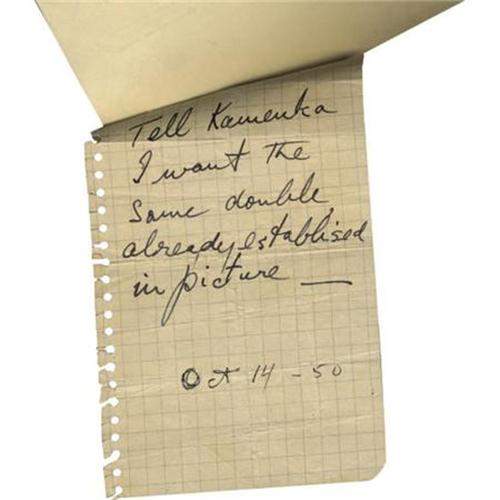 Tell Kamenka
I want the
same double,
already establised
in picture —
Oct 14 - 50